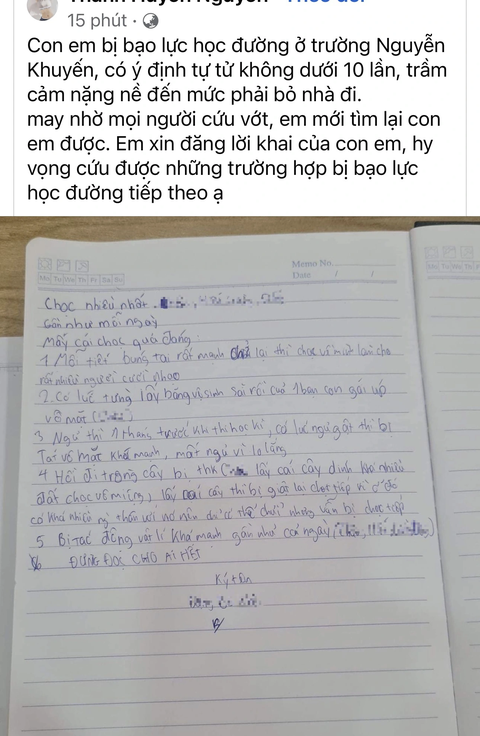 15 phút
Con em bị bạo lực học đường ở trường Nguyễn
Khuyến, có ý định tự tử không dưới 10 lần, trầm
cảm nặng nề đến mức phải bỏ nhà đi.
may nhờ mọi người cứu vớt, em mới tìm lại con
em được. Em xin đăng lời khai của con em, hy
vọng cứu được những trường hợp bị bạo lực
học đường tiếp theo ạ
Memo No.
Mo Tu We Th Fr Sa Su
Date / /
Chọc nhiều nhất
Gần như mỗi ngày
Mấy cái chọc quá đáng:
1 Mỗi tiết bung tai rất mạnh lại thì chọc và hùa làm cho
rất nhiều người cười nhạo
2. Có lúc từng lấy băng vệ sinh sài rồi của 1 bạn con gái úp
vô mặt
3 Ngủ thì 1 tháng trước khi thi học kì, có lúc ngủ gật thì bị
Tát vô mặt khá mạnh, mất ngủ vì lo lắng
4 Hồi đi trồng cây bị lấy cái cây dính khá nhiều
đất chọc vô miệng, lấy cây thì bị giật lại chọc tiếp vì ở đó
có khá nhiều vẫn bị chọc tiếp
5 Bị tác động vật lí khá mạnh gần như cả ngày
ĐỪNG ĐỌC CHO AI HẾT
Ký tên